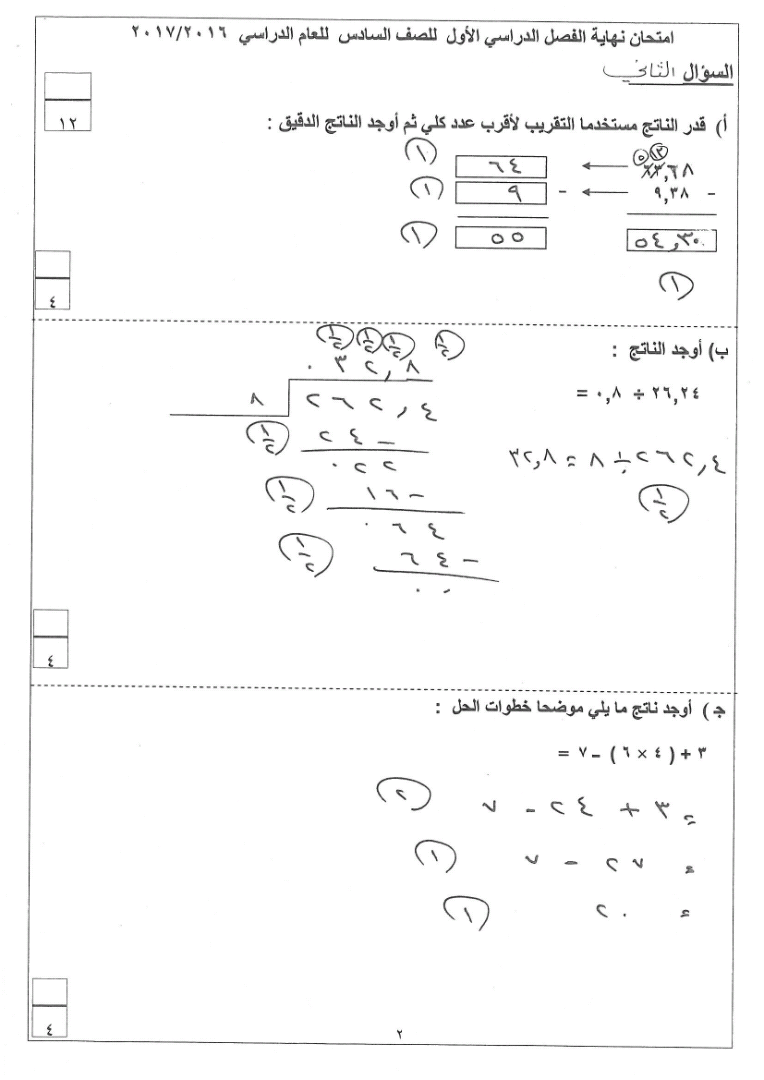 امتحان نهاية الفصل الدراسي الأول للصف السادس للعام الدراسي ٢٠١٦/٢٠١٧
السؤال الثاني
١٢
أ) قدر الناتج مستخدما التقريب لأقرب عدد كلي ثم أوجد الناتج الدقيق :
٥ ١٣
٦٣,٦٨ ← ٦٤ ١
- ٩,٣٨ ← - ٩ ١
٥٤,٣٠ ٥٥ ١
١
٤
ب) أوجد الناتج :
٢٦,٢٤ ÷ ٠,٨ =
٢٦٢,٤ ÷ ٨ = ٣٢,٨
١/٢
١/٢ ١/٢ ١/٢ ١/٢
٠٣٢,٨
٨ ٢٦٢,٤
- ٢٤ ١/٢
٠٢٢
- ١٦ ١/٢
٠٦٤
- ٦٤ ١/٢
٠٠
٤
جـ) أوجد ناتج ما يلي موضحا خطوات الحل :
٣ + ( ٤ × ٦ ) – ٧ =
= ٣ + ٢٤ - ٧ ٢
= ٢٧ - ٧ ١
= ٢٠ ١
٤
٢